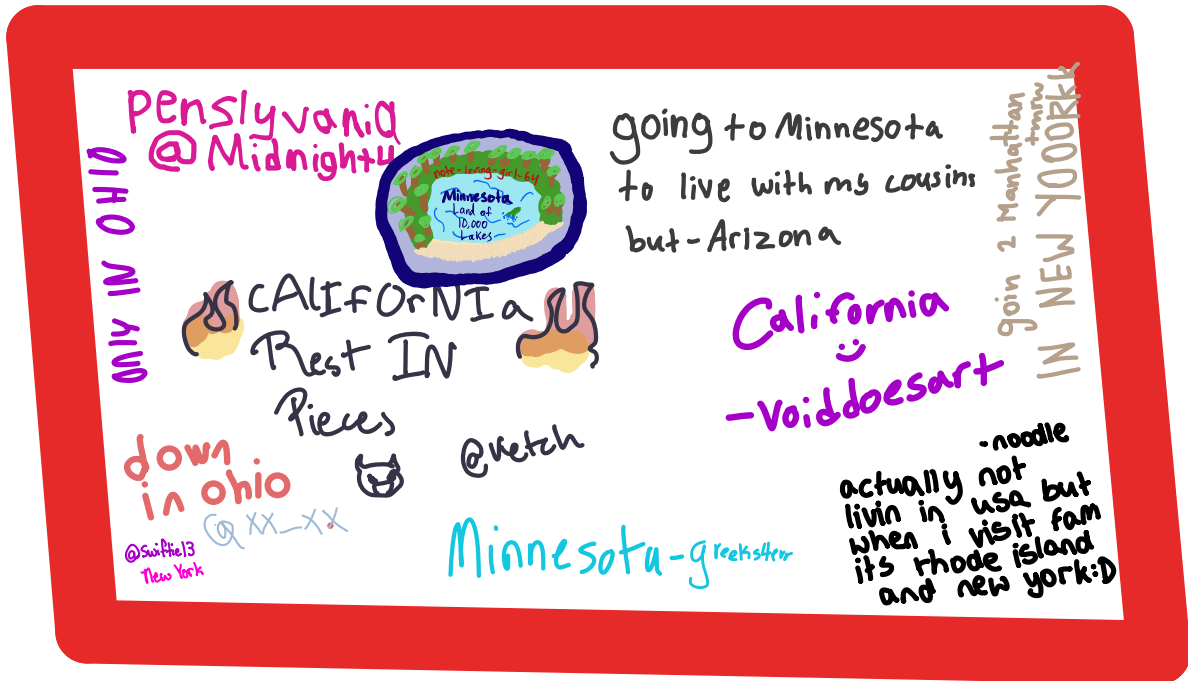 penslyvania
@Midnight4
ONLY IN OHIO
note-loving-girl-64
Minnesota
Land of
10,000
Lakes
going to Minnesota
to live with my cousins
but-Arizona
goin 2 Manhattan
tmrw
IN NEW YOOORKK
cAlIfOrNIa
Rest IN
Pieces
@vetch
California
-Voiddoesart
down
in ohio
@xx_xx
@swiftie13
New York
Minnesota-greeks4evr
-noodle
actually not
livin in usa but
when i visit fam
its rhode island
and new york:D